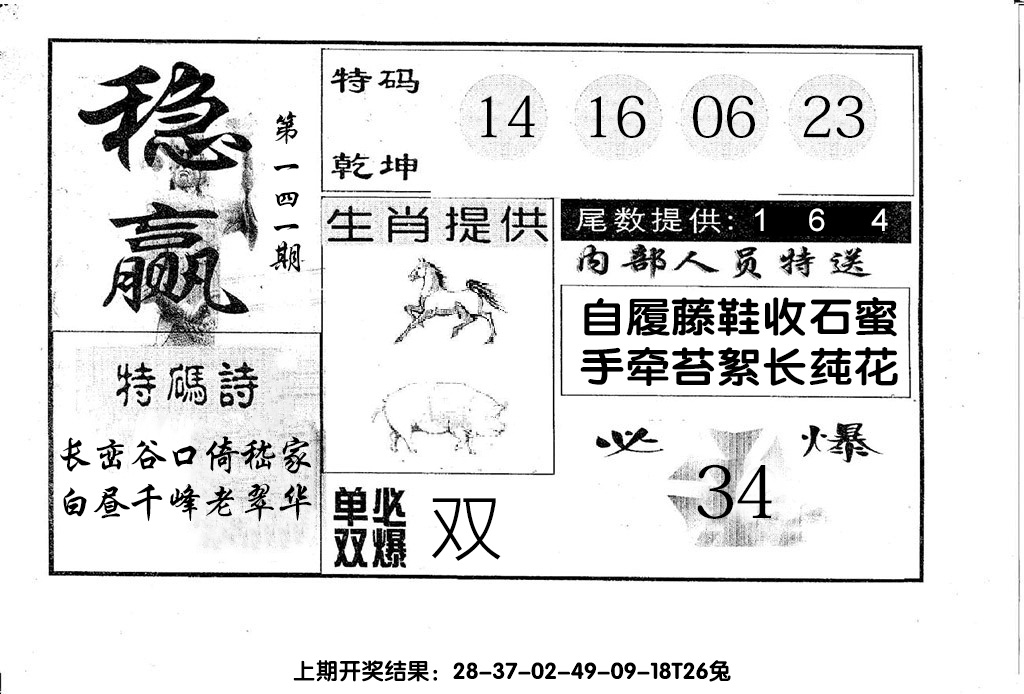 稳赢
第一四一期
特码
乾坤
14 16 06 23
生肖提供
尾数提供: 1 6 4
内部人员特送
自履藤鞋收石蜜
手牵苔絮长莼花
特碼詩
长峦谷口倚嵇家
白昼千峰老翠华
单双
必爆
双
必爆
34
上期开奖结果：28-37-02-49-09-18T26兔